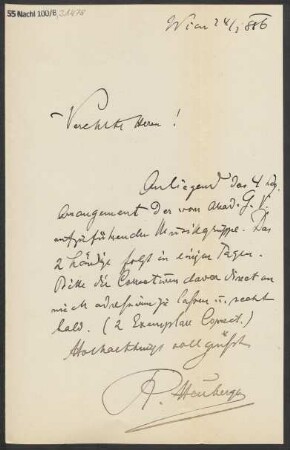 55 Nachl 100/B,
Wien 24/5 886
Verehrte Herren!
Anliegend das 4 hdg.
Arrangement der vom akad. G. V.
aufzuführenden Musikgruppe. Das
2 händige folgt in einigen Tagen.
Bitte die Correcturen davon direct an
mich adressiren zu lassen u. recht
bald. (2 Exemplare Correct.)
Hochachtungsvoll grüßt
R. Heuberger